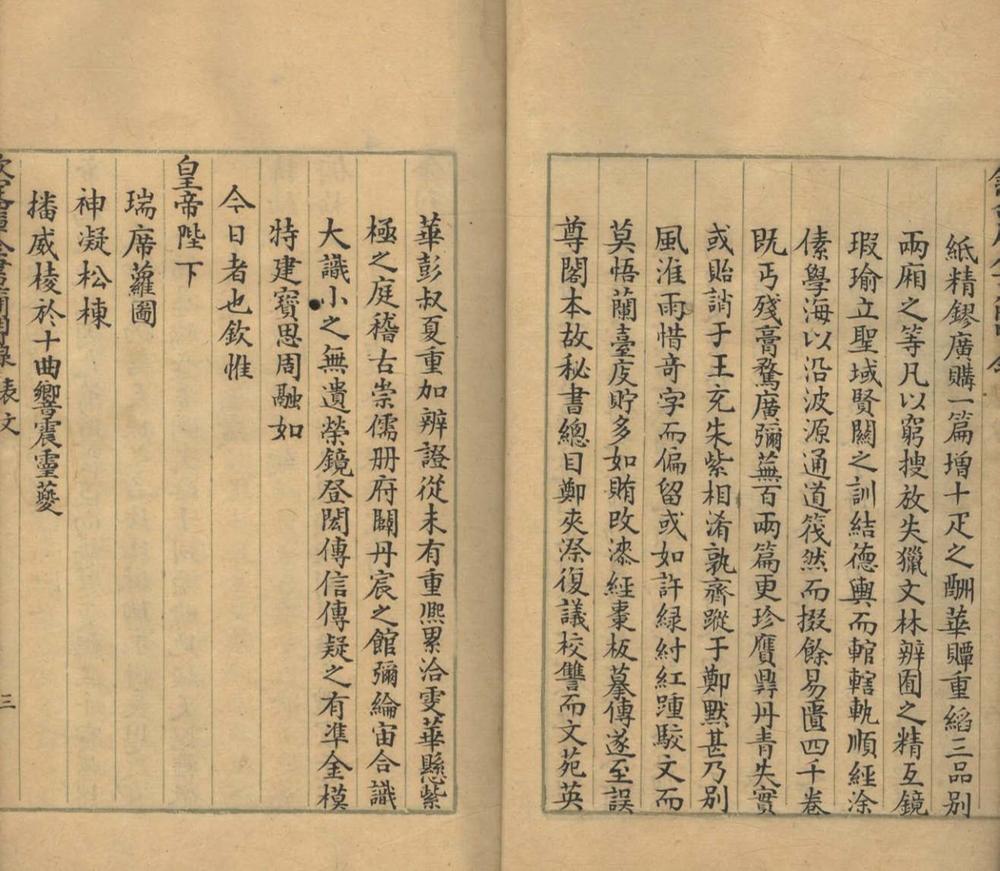 紙精鏐廣購一篇增十疋之酬華贉重縚三品別
兩厢之等凡以窮搜放失獵文林辨囿之精互鏡
瑕瑜立聖域賢關之訓結德輿而輨轄軌順經涂
傃學海以沿波源通道筏然而掇餘易匱四千卷
既丐殘膏騖廣彌蕪百兩篇更珍贋鼎丹青失實
或貽誚于王充朱紫相淆孰齊蹤于鄭默甚乃別
風淮雨惜奇字而偏留或如許緑紂紅踵駮文而
莫悟蘭臺庋貯多如賄改漆經棗板摹傳遂至誤
尊閣本故秘書總目鄭夾漈復議校讐而文苑英
華彭叔夏重加辨證從未有重熈累洽雯華懸紫
極之庭稽古崇儒册府闢丹宸之館彌綸宙合識
大識小之無遺榮鏡登閎傳信傳疑之有準金模
特建寶思周融如
今日者也欽惟
皇帝陛下
瑞席蘿圖
神凝松棟
播威棱於十曲響震靈夔
表文
三